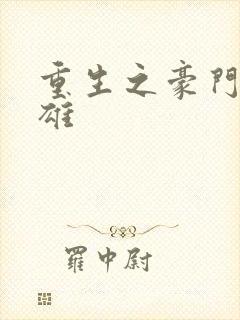 重生之豪門
雄
羅中尉